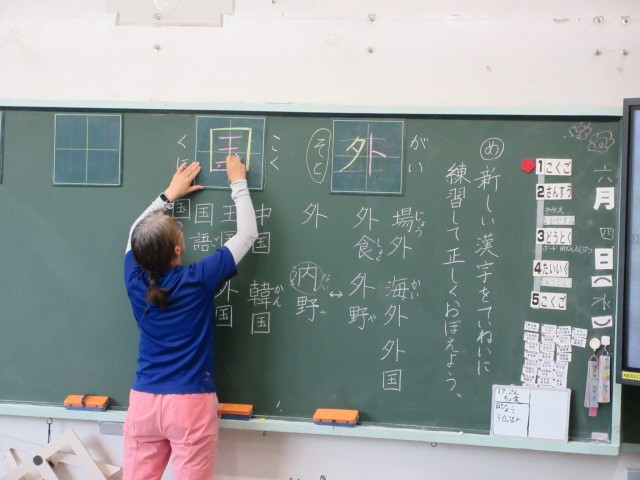 六月四日(水)
1こくご
2さんすう
3どうとく
4たいいく
5こくご
め 新しい漢字をていねいに
練習して正しくおぼえよう、
がい
外
そと
場外 海外 外国
じょう かい
外食 外野
しょく や
外 ↔ 内野
ない や
こく
国
くに
中国 韓国
かん
王国 外国
国語
国